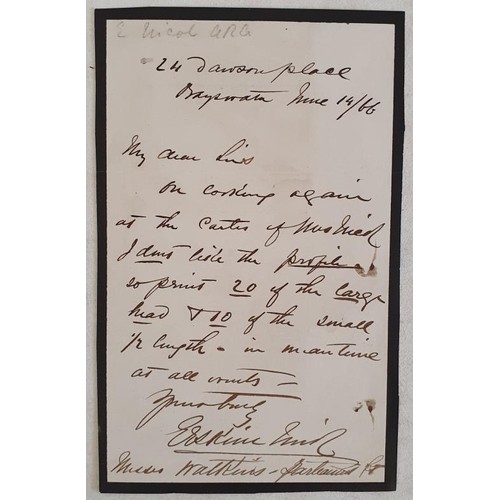 E Nicol ARA
24 Dawson place
Bayswater June 14/66
My dear Sirs
On looking again
at the cartes of Mrs Nicol
I dont like the profile -
so print 20 of the large
head & 10 of the small
1/2 length - in meantime
at all events -
Yours truly
Erskine Nicol
Messrs Watkins - Parliament St